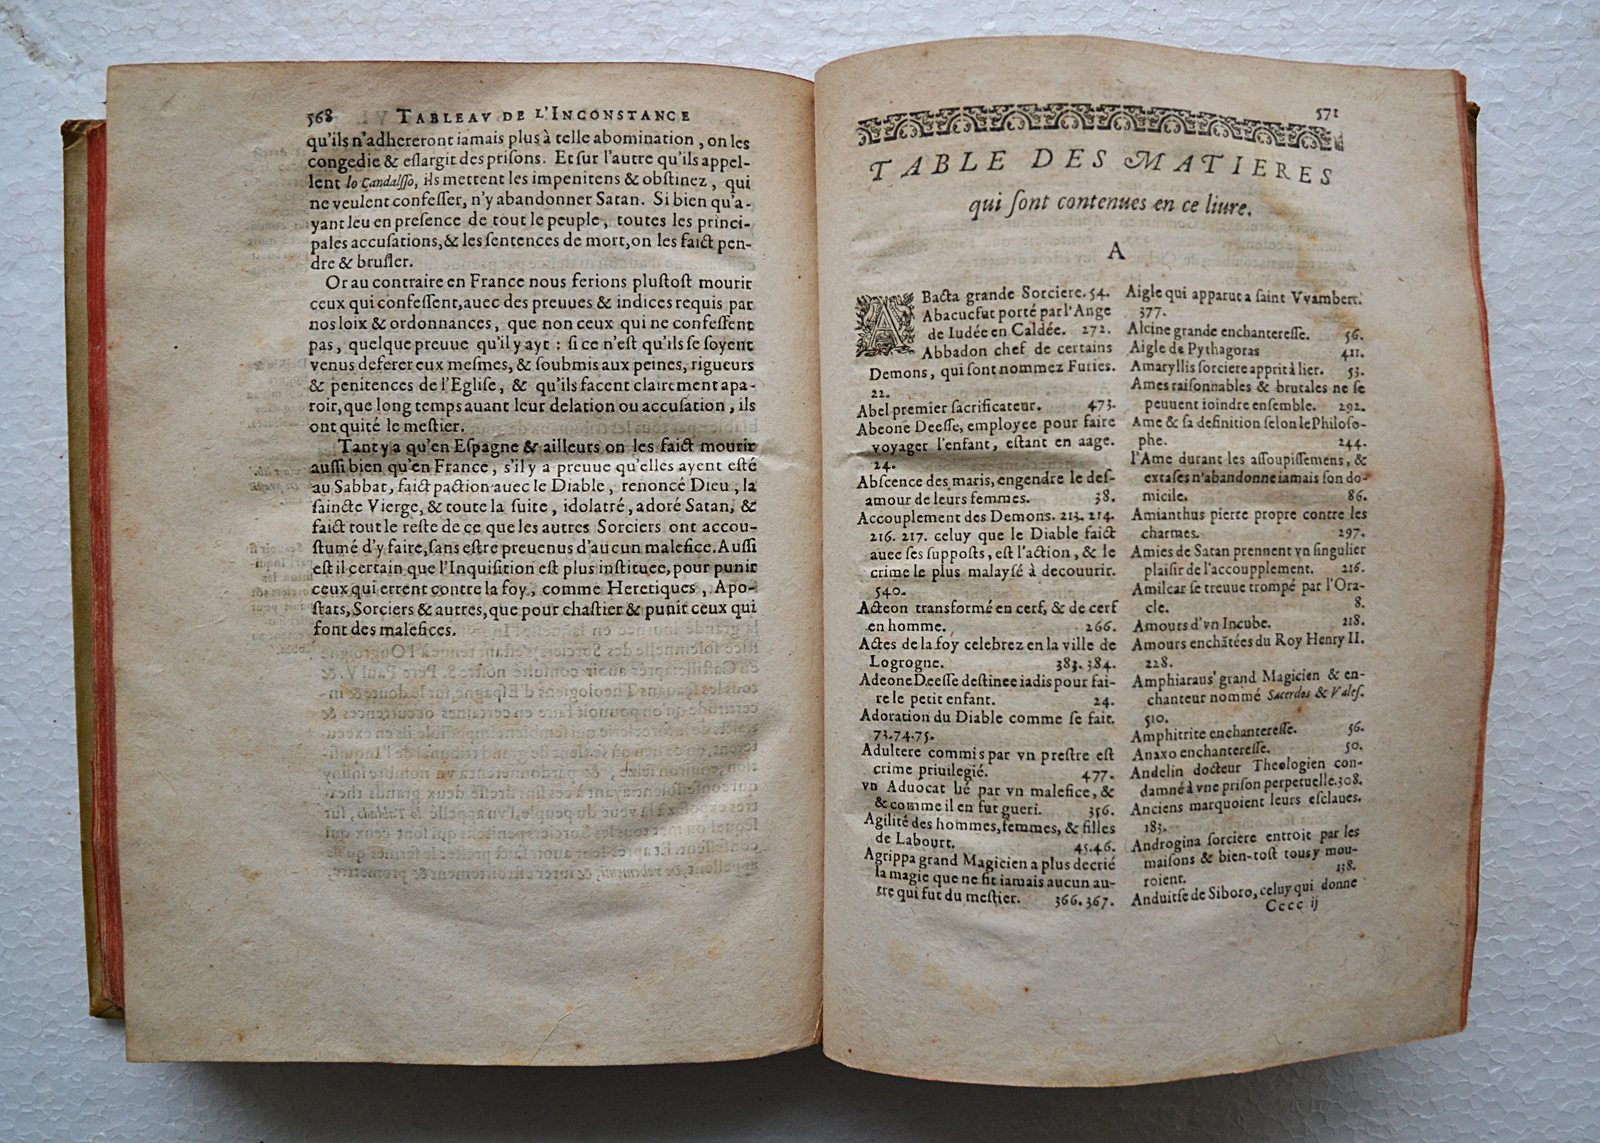 568 TABLEAV DE L'INCONSTANCE
qu'ils n'adhereront iamais plus à telle abomination, on les
congedie & eſlargit des priſons. Et ſur l'autre qu'ils appel-
lent lo Candalſſo, ils mettent les impenitens & obſtinez, qui
ne veulent confeſſer, n'y abandonner Satan. Si bien qu'a-
yant leu en preſence de tout le peuple, toutes les princi-
pales accuſations, & les ſentences de mort, on les faict pen-
dre & bruſler.
Or au contraire en France nous ferions pluſtoſt mourir
ceux qui confeſſent, auec des preuues & indices requis par
nos loix & ordonnances, que non ceux qui ne confeſſent
pas, quelque preuue qu'il y ayt : ſi ce n'eſt qu'ils ſe ſoyent
venus deferer eux meſmes, & ſoubmis aux peines, rigueurs
& penitences de l'Egliſe, & qu'ils facent clairement apa-
roir, que long temps auant leur delation ou accuſation, ils
ont quité le meſtier.
Tant y a qu'en Eſpagne & ailleurs on les faict mourir
auſſi bien qu'en France, s'il y a preuue qu'elles ayent eſté
au Sabbat, faict paction auec le Diable, renoncé Dieu, la
ſaincte Vierge, & toute la ſuite, idolatré, adoré Satan, &
faict tout le reſte de ce que les autres Sorciers ont accou-
ſtumé d'y faire, ſans eſtre preuenus d'aucun malefice. Auſſi
eſt il certain que l'Inquiſition eſt plus inſtituee, pour punir
ceux qui errent contre la foy, comme Heretiques, Apo-
ſtats, Sorciers & autres, que pour chaſtier & punir ceux qui
font des malefices.
571
TABLE DES MATIERES
qui ſont contenues en ce liure.
A
ABacta grande Sorciere. 54.
Abacuc fut porté par l'Ange
de Iudée en Caldée. 272.
Abbadon chef de certains
Demons, qui ſont nommez Furies.
22.
Abel premier ſacrificateur. 473.
Abeone Deeſſe, employee pour faire
voyager l'enfant, eſtant en aage.
24.
Abſcence des maris, engendre le deſ-
amour de leurs femmes. 38.
Accouplement des Demons. 213. 214.
216. 217. celuy que le Diable faict
auec ſes ſuppoſts, eſt l'action, & le
crime le plus malayſé à decouurir.
540.
Acteon transformé en cerf, & de cerf
en homme. 266.
Actes de la foy celebrez en la ville de
Logrogne. 383. 384.
Adeone Deeſſe deſtinee iadis pour fai-
re le petit enfant. 24.
Adoration du Diable comme ſe fait.
73. 74. 75.
Adultere commis par vn preſtre eſt
crime priuilegié. 477.
vn Aduocat lié par vn malefice, &
& comme il en fut gueri. 356.
Agilité des hommes, femmes, & filles
de Labourt. 45. 46.
Agrippa grand Magicien a plus decrié
la magie que ne fit iamais aucun au-
tre qui fut du meſtier. 366. 367.
Aigle qui apparut a ſaint Vvambert.
377.
Alcine grande enchantereſſe. 56.
Aigle de Pythagoras 411.
Amaryllis ſorciere apprit à lier. 53.
Ames raiſonnables & brutales ne ſe
peuuent ioindre enſemble. 292.
Ame & ſa definition ſelon le Philoſo-
phe. 244.
l'Ame durant les aſſoupiſſemens, &
extaſes n'abandonne iamais ſon do-
micile. 86.
Amianthus pierre propre contre les
charmes. 297.
Amies de Satan prennent vn ſingulier
plaiſir de l'accoupplement. 216.
Amilcar ſe treuue trompé par l'Ora-
cle. 8.
Amours d'vn Incube. 218.
Amours enchãtées du Roy Henry II.
228.
Amphiaraus grand Magicien & en-
chanteur nommé Sacerdos & Vates.
510.
Amphitrite enchantereſſe. 56.
Anaxo enchantereſſe. 50.
Andelin docteur Theologien con-
damné à vne priſon perpetuelle. 308.
Anciens marquoient leurs eſclaues.
183.
Androgina ſorciere entroit par les
maiſons & bien-toſt tous y mou-
roient. 138.
Anduitſe de Siboro, celuy qui donne
Cccc ij